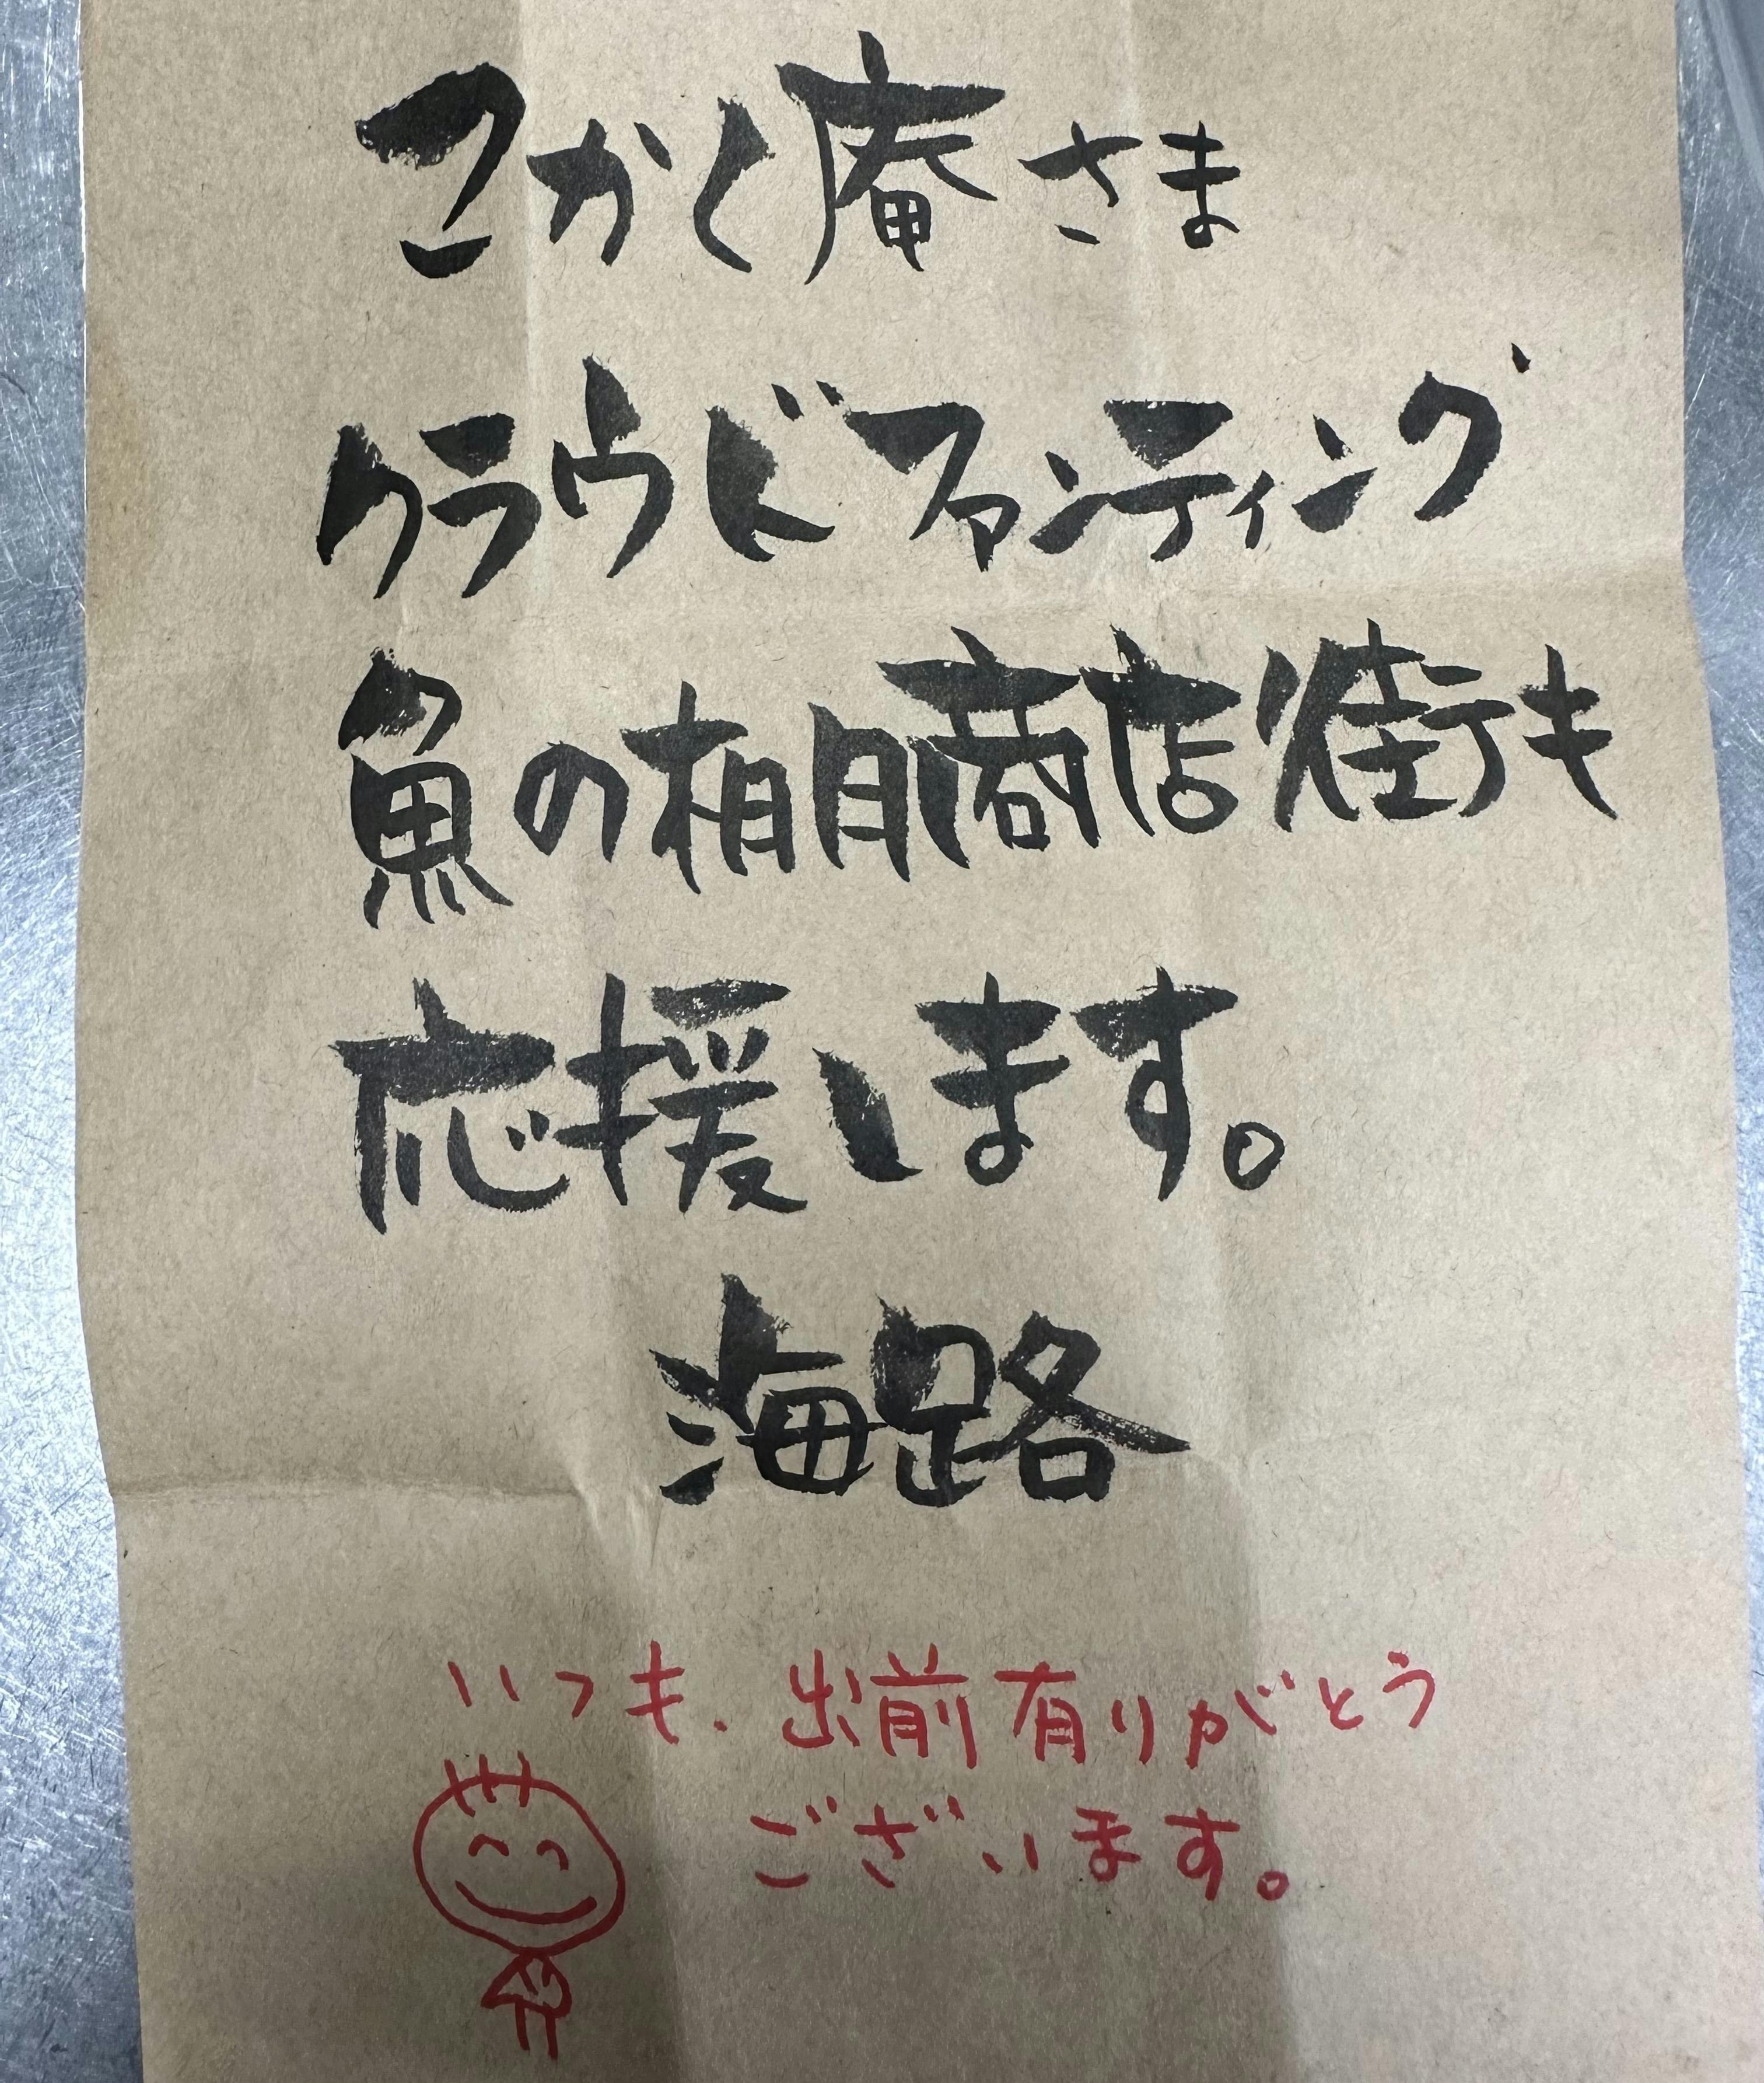 こかく庵さま
クラウドファンティング
魚の棚商店街も
応援します。
海路
いつも、出前有りがとう
ございます。